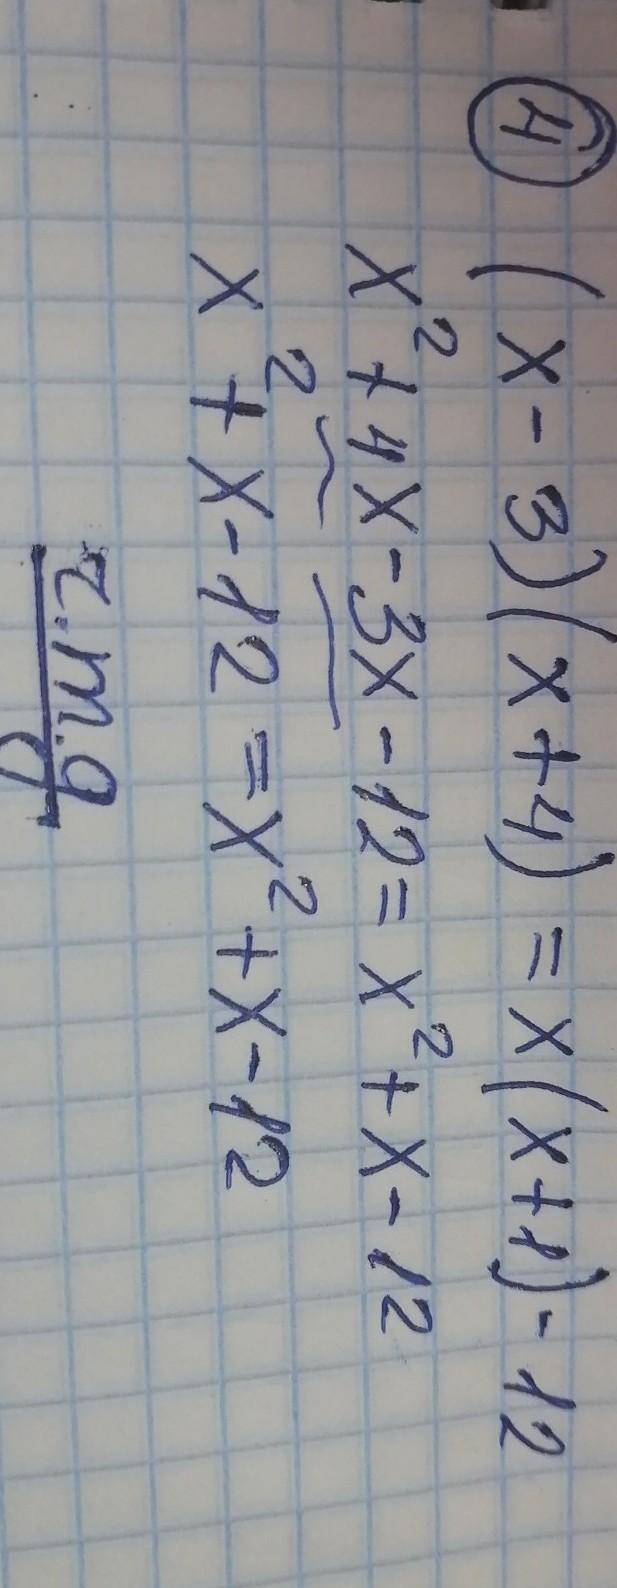 4 (x-3)(x+4)=x(x+1)-12
x²+4x-3x-12=x²+x-12
x²+x-12=x²+x-12
r.m.g